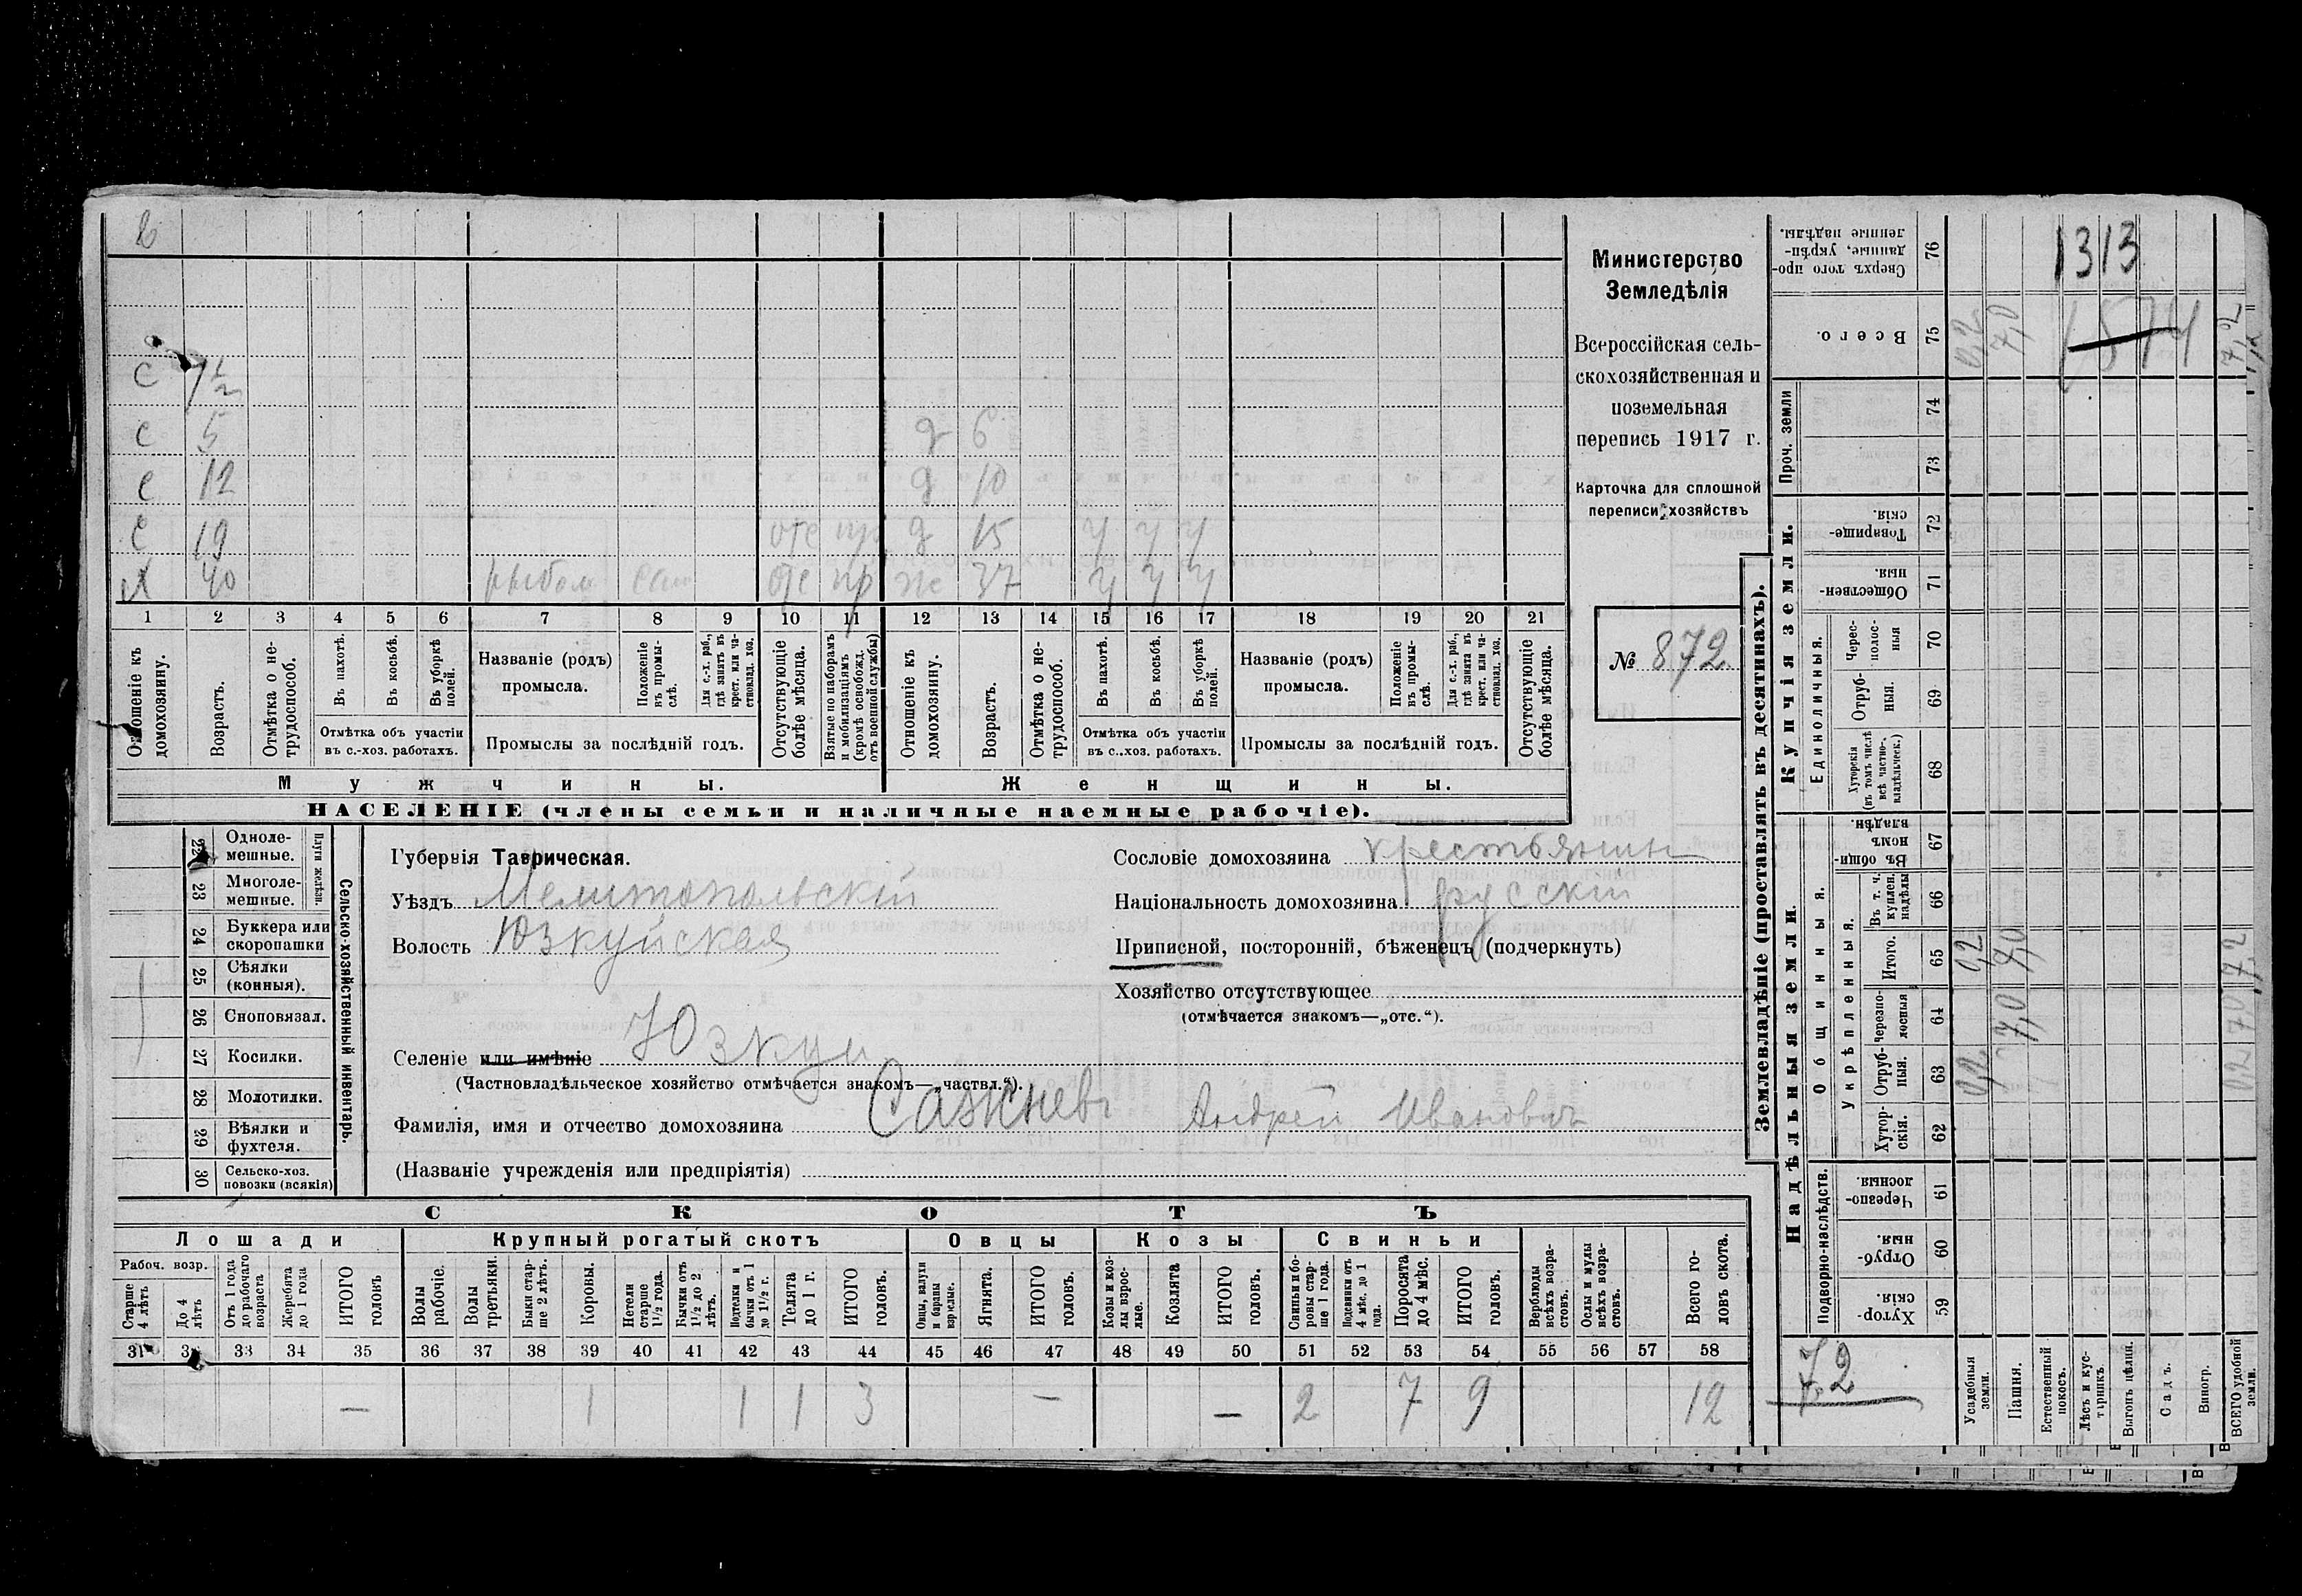 с 1½
с 5 д 6
с 12 д 10
с 19 отс пр д 15 у у у
х 40 рыбол сам отс пр ж 37 у у у
1 2 3 4 5 6 7 8 9 10 11 12 13 14 15 16 17 18 19 20 21
Отношеніе къ домохозяину.
Возрастъ.
Отмѣтка о нетрудоспособ.
Въ пахотѣ.
Въ косьбѣ.
Въ уборкѣ полей.
Отмѣтка объ участіи въ с.-хоз. работахъ.
Названіе (родъ) промысла.
Положеніе въ промыслѣ.
Для с.-х. раб., гдѣ занятъ въ крест. или частновлад. хоз.
Промыслы за послѣдній годъ.
Отсутствующіе болѣе мѣсяца.
Взятые по наборамъ и мобилизаціямъ (кромѣ освобожд. отъ военной службы)
Отношеніе къ домохозяину.
Возрастъ.
Отмѣтка о нетрудоспособ.
Въ пахотѣ.
Въ косьбѣ.
Въ уборкѣ полей.
Отмѣтка объ участіи въ с.-хоз. работахъ.
Названіе (родъ) промысла.
Положеніе въ промыслѣ.
Для с.-х. раб., гдѣ занята въ крест. или частновлад. хоз.
Промыслы за послѣдній годъ.
Отсутствующіе болѣе мѣсяца.
Мужчины.
Женщины.
НАСЕЛЕНІЕ (члены семьи и наличные наемные рабочіе).
Министерство
Земледѣлія
Всероссійская сель-
скохозяйственная и
поземельная
перепись 1917 г.
Карточка для сплошной
переписи хозяйствъ
№ 872
Сельско-хозяйственный инвентарь.
Плуги желѣзн.
22 Одноле-
мешные.
23 Многоле-
мешные.
24 Буккера или
скоропашки
25 Сѣялки
(конныя).
26 Сноповязал.
27 Косилки.
28 Молотилки.
29 Вѣялки и
фухтеля.
30 Сельско-хоз.
повозки (всякія)
Губернія Таврическая.
Уѣздъ Мелитопольскій
Волость Юзкуйская
Селеніе или имѣніе Юзкуи
(Частновладѣльческое хозяйство отмѣчается знакомъ—„частвл.“).
Фамилія, имя и отчество домохозяина Сажневъ Андрей Ивановичъ
(Названіе учрежденія или предпріятія)
Сословіе домохозяина крестьянинъ
Національность домохозяина русскій
Приписной, посторонній, бѣженецъ (подчеркнуть)
Хозяйство отсутствующее
(отмѣчается знакомъ—„отс.“).
СКОТЪ
Лошади
Крупный рогатый скотъ
Овцы
Козы
Свиньи
Рабоч. возр.
Старше 4 лѣтъ
До 4 лѣтъ
Отъ 1 года до рабочаго возраста
Жеребята до 1 года
ИТОГО головъ
Волы рабочіе.
Волы третьяки.
Быки старше 2 лѣтъ.
Коровы.
Нетели старше 1½ года.
Бычки отъ 1½ до 2 лѣтъ.
Подтелки и бычки отъ 1 до 1½ г.
Телята до 1 г.
ИТОГО головъ.
Овцы, валухи и бараны взрослые.
Ягнята.
ИТОГО головъ.
Козы и козлы взрослые.
Козлята
ИТОГО головъ.
Свиньи и боровы старше 1 года.
Подсвинки отъ 4 мѣс. до 1 года.
Поросята до 4 мѣс.
ИТОГО головъ.
Верблюды всѣхъ возрастовъ.
Ослы и мулы всѣхъ возрастовъ.
Всего головъ скота.
31 33 34 35 36 37 38 39 40 41 42 43 44 45 46 47 48 49 50 51 52 53 54 55 56 57 58
— 1 1 1 3 — — 2 7 9 12
Землевладѣніе (проставлять въ десятинахъ).
Купчія земли.
Надѣльныя земли.
Сверхъ того проданные, укрѣпленные надѣлы. 76
1313
Всего. 75 0,2 7,0 1574 7,2
Проч. земли
74
73
Товарищескія. 72
Общественныя. 71
Единоличныя.
Чересполосныя 70
Отрубныя. 69
Хуторскія (въ томъ числѣ всѣ частновладѣльческ.) 68
Общинныя.
Въ общинномъ владѣн. 67
Укрѣпленныя.
Въ т. ч. куплен. надѣлы 66
Итого. 65 0,2 7,0 7,2
Черезполосныя 64 7,0 7,0
Отрубныя. 63 0,2 0,2
Хуторскія. 62
Подворно-наслѣдств.
Черезполосныя. 61
Отрубныя. 60
Хуторскія. 59
7,2
Усадебныя земли.
Пашня.
Естественный покосъ.
Лѣсъ и кустарникъ.
Выгонъ цѣлин.
Садъ.
Виногр.
ВСЕГО удобной земли.